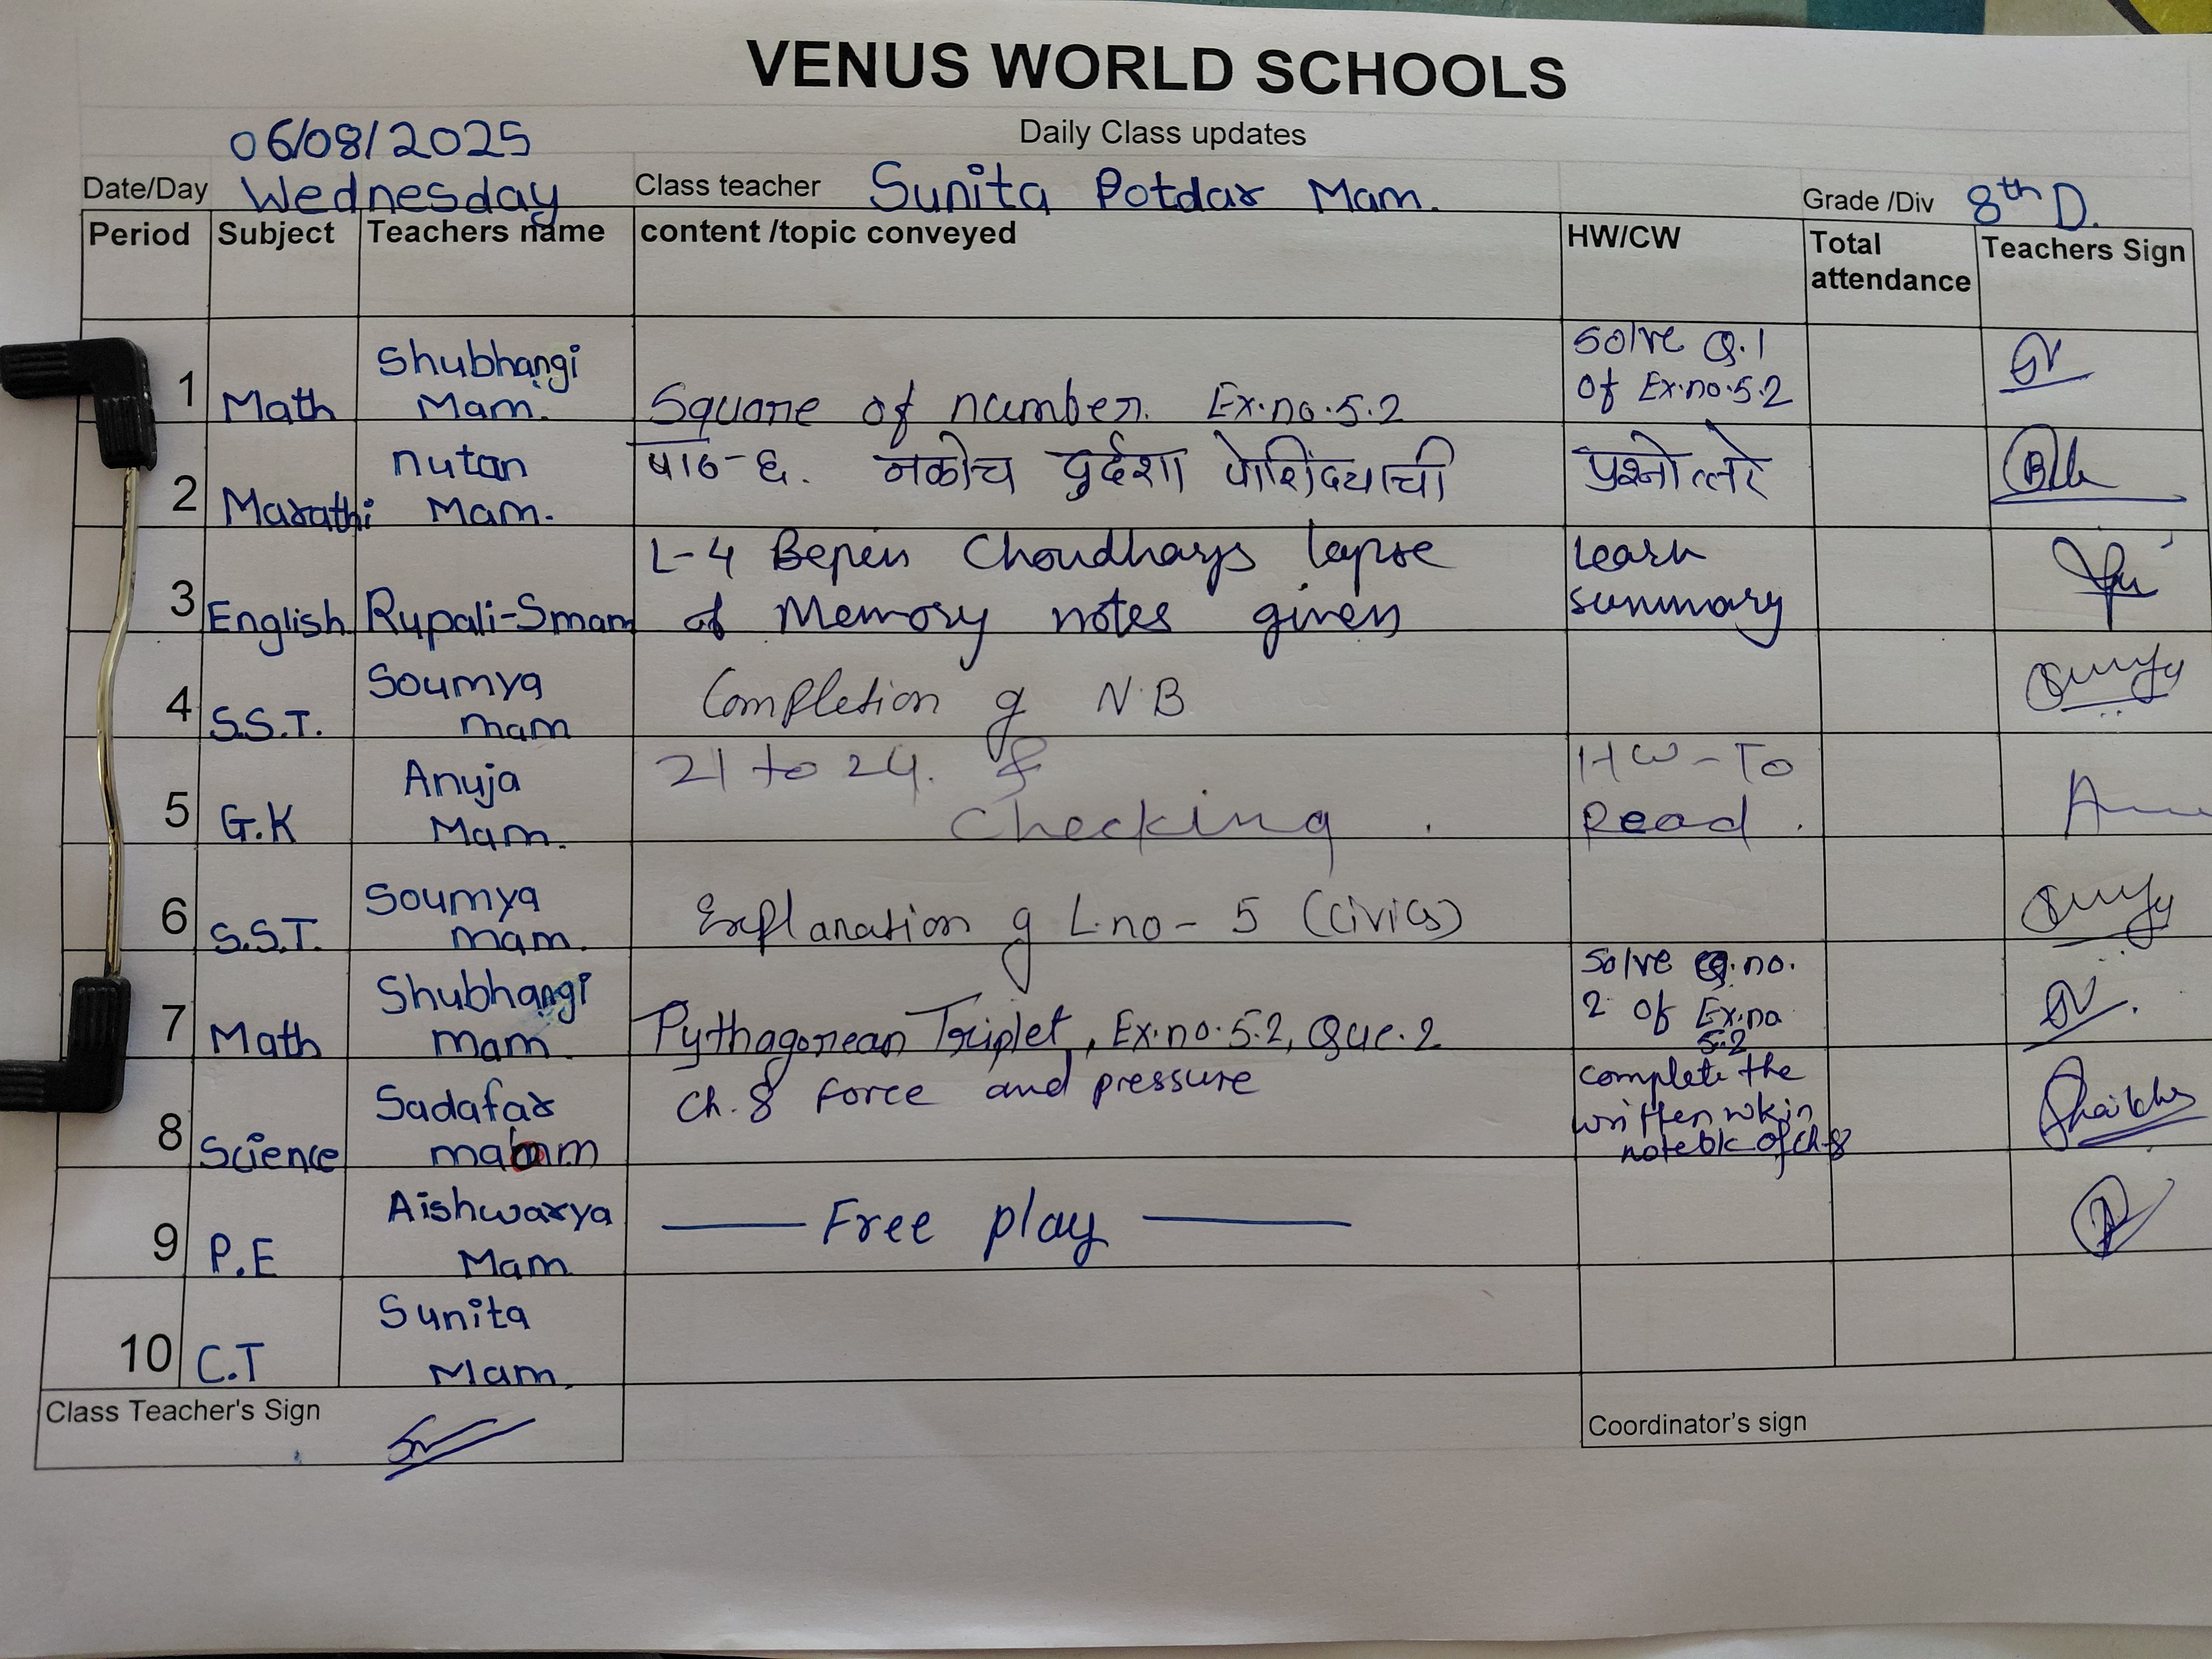 VENUS WORLD SCHOOLS
Daily Class updates
06/08/2025
Date/Day Wednesday Class teacher Sunita Potdar Mam. Grade /Div 8th D.
Period Subject Teachers name content /topic conveyed HW/CW Total attendance Teachers Sign
1 Math Shubhangi Mam. Square of number. Ex.no.5.2 Solve Q.1 of Ex.no.5.2
2 Marathi nutan Mam. पाठ-६. नकोच दुर्दशा पोशिंद्याची प्रश्नोत्तरे
3 English Rupali-Smam L-4 Bepin Choudharys lapse of Memory notes given Learn summary
4 S.S.T. Soumya mam Completion of N.B
5 G.K Anuja Mam. 21 to 24. & Checking. HW-To Read.
6 S.S.T. Soumya mam. Explanation of L.no- 5 (Civics)
7 Math Shubhangi mam. Pythagorean Triplet, Ex.no.5.2, Que.2 Solve Q.no. 2 of Ex.no 5.2
8 Science Sadafar Ch. 8 Force and pressure complete the written wk in notebk of ch-8
9 P.E Aishwarya Mam Free play
10 C.T Sunita Mam.
Class Teacher's Sign Coordinator's sign